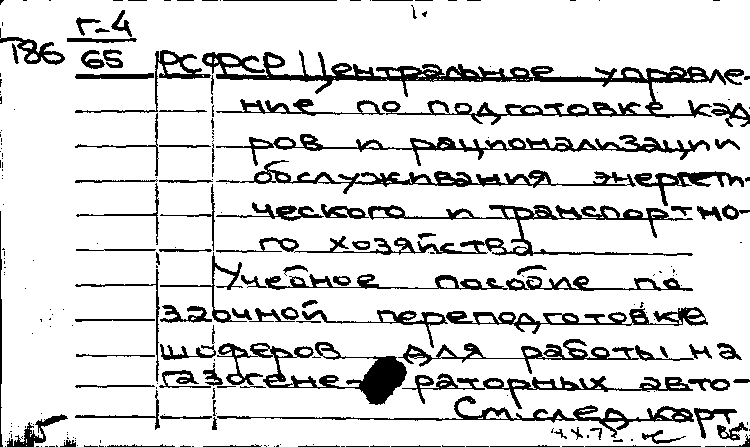 Г-4
Т86 65
РСФСР Центральное управле-
ние по подготовке кад
ров и рационализации
обслуживания энергети-
ческого и транспортно-
го хозяйства.
Учебное пособие по
заочной переподготовке
шоферов для работы на
газогене- раторных авто-
См. след. карт.